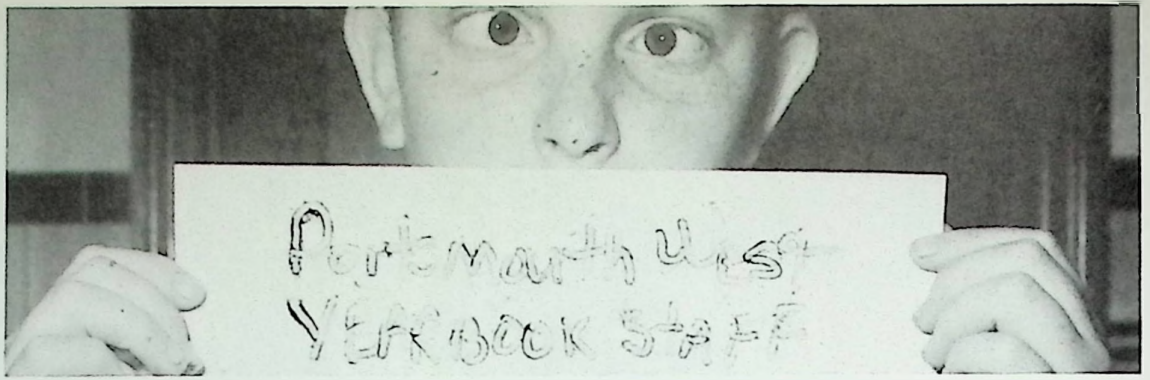 Portsmouth West
YEARBOOK STAFF